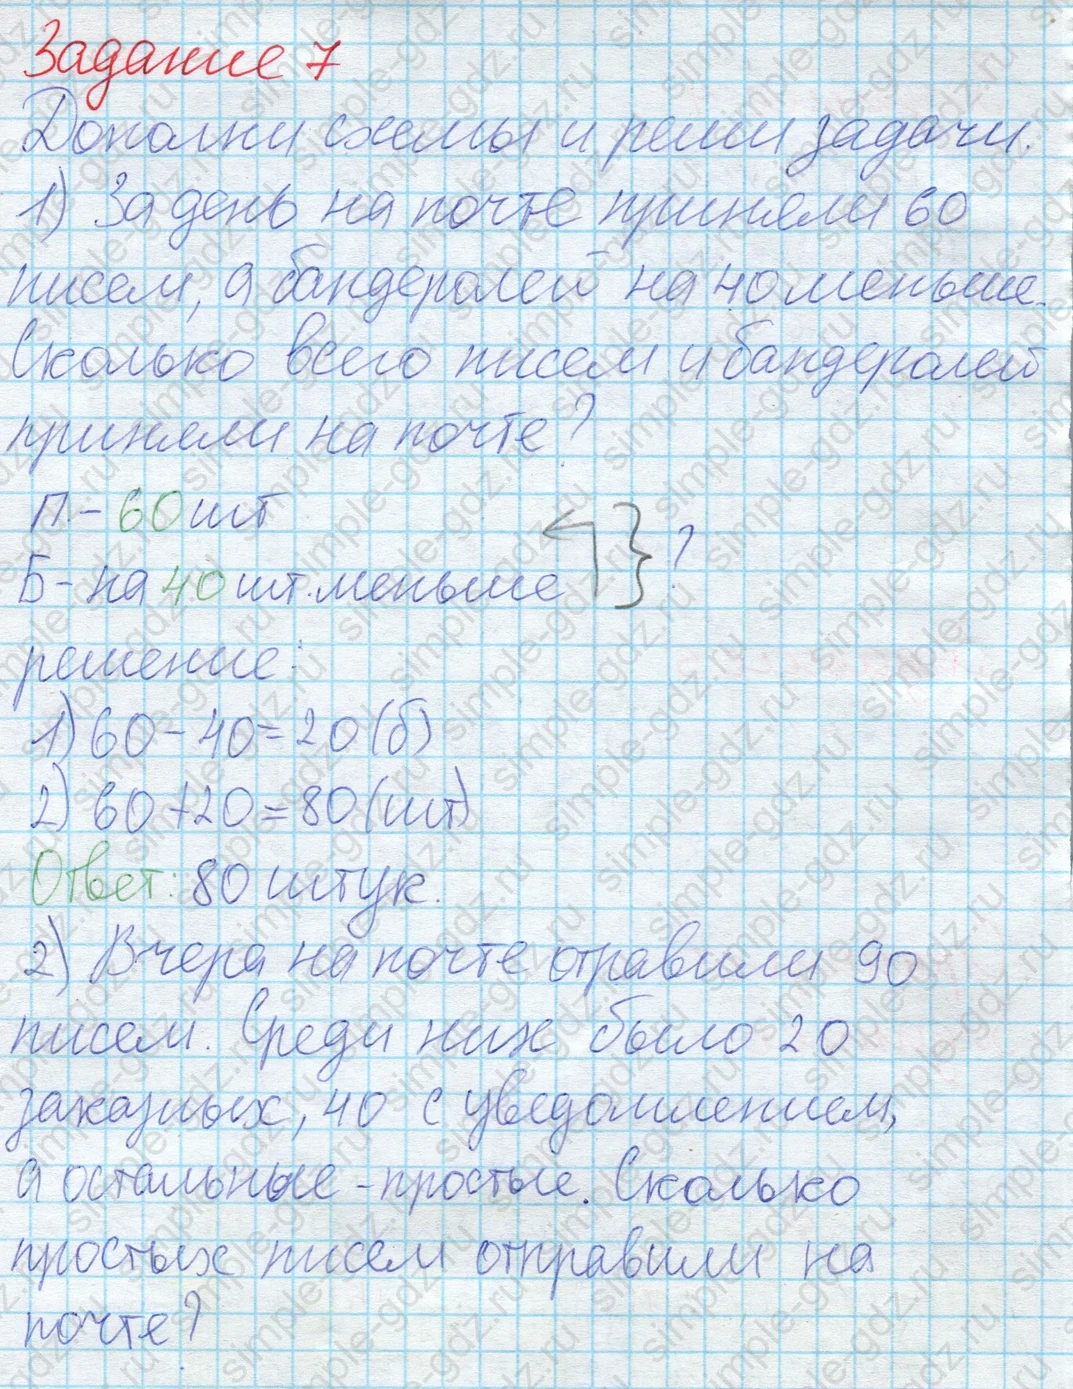 Задание 7
Дополни схемы и реши задачи.
1) За день на почте приняли 60
писем, а бандеролей на 40 меньше.
Сколько всего писем и бандеролей
приняли на почте?
П. - 60 шт
Б - на 40 шт. меньше } ?
решение:
1) 60 - 40 = 20 (б)
2) 60 + 20 = 80 (шт)
Ответ: 80 штук.
2) Вчера на почте отравили 90
писем. Среди них было 20
заказных, 40 с уведомлением,
а остальные - простые. Сколько
простых писем отправили на
почте?
simple-gdz.ru